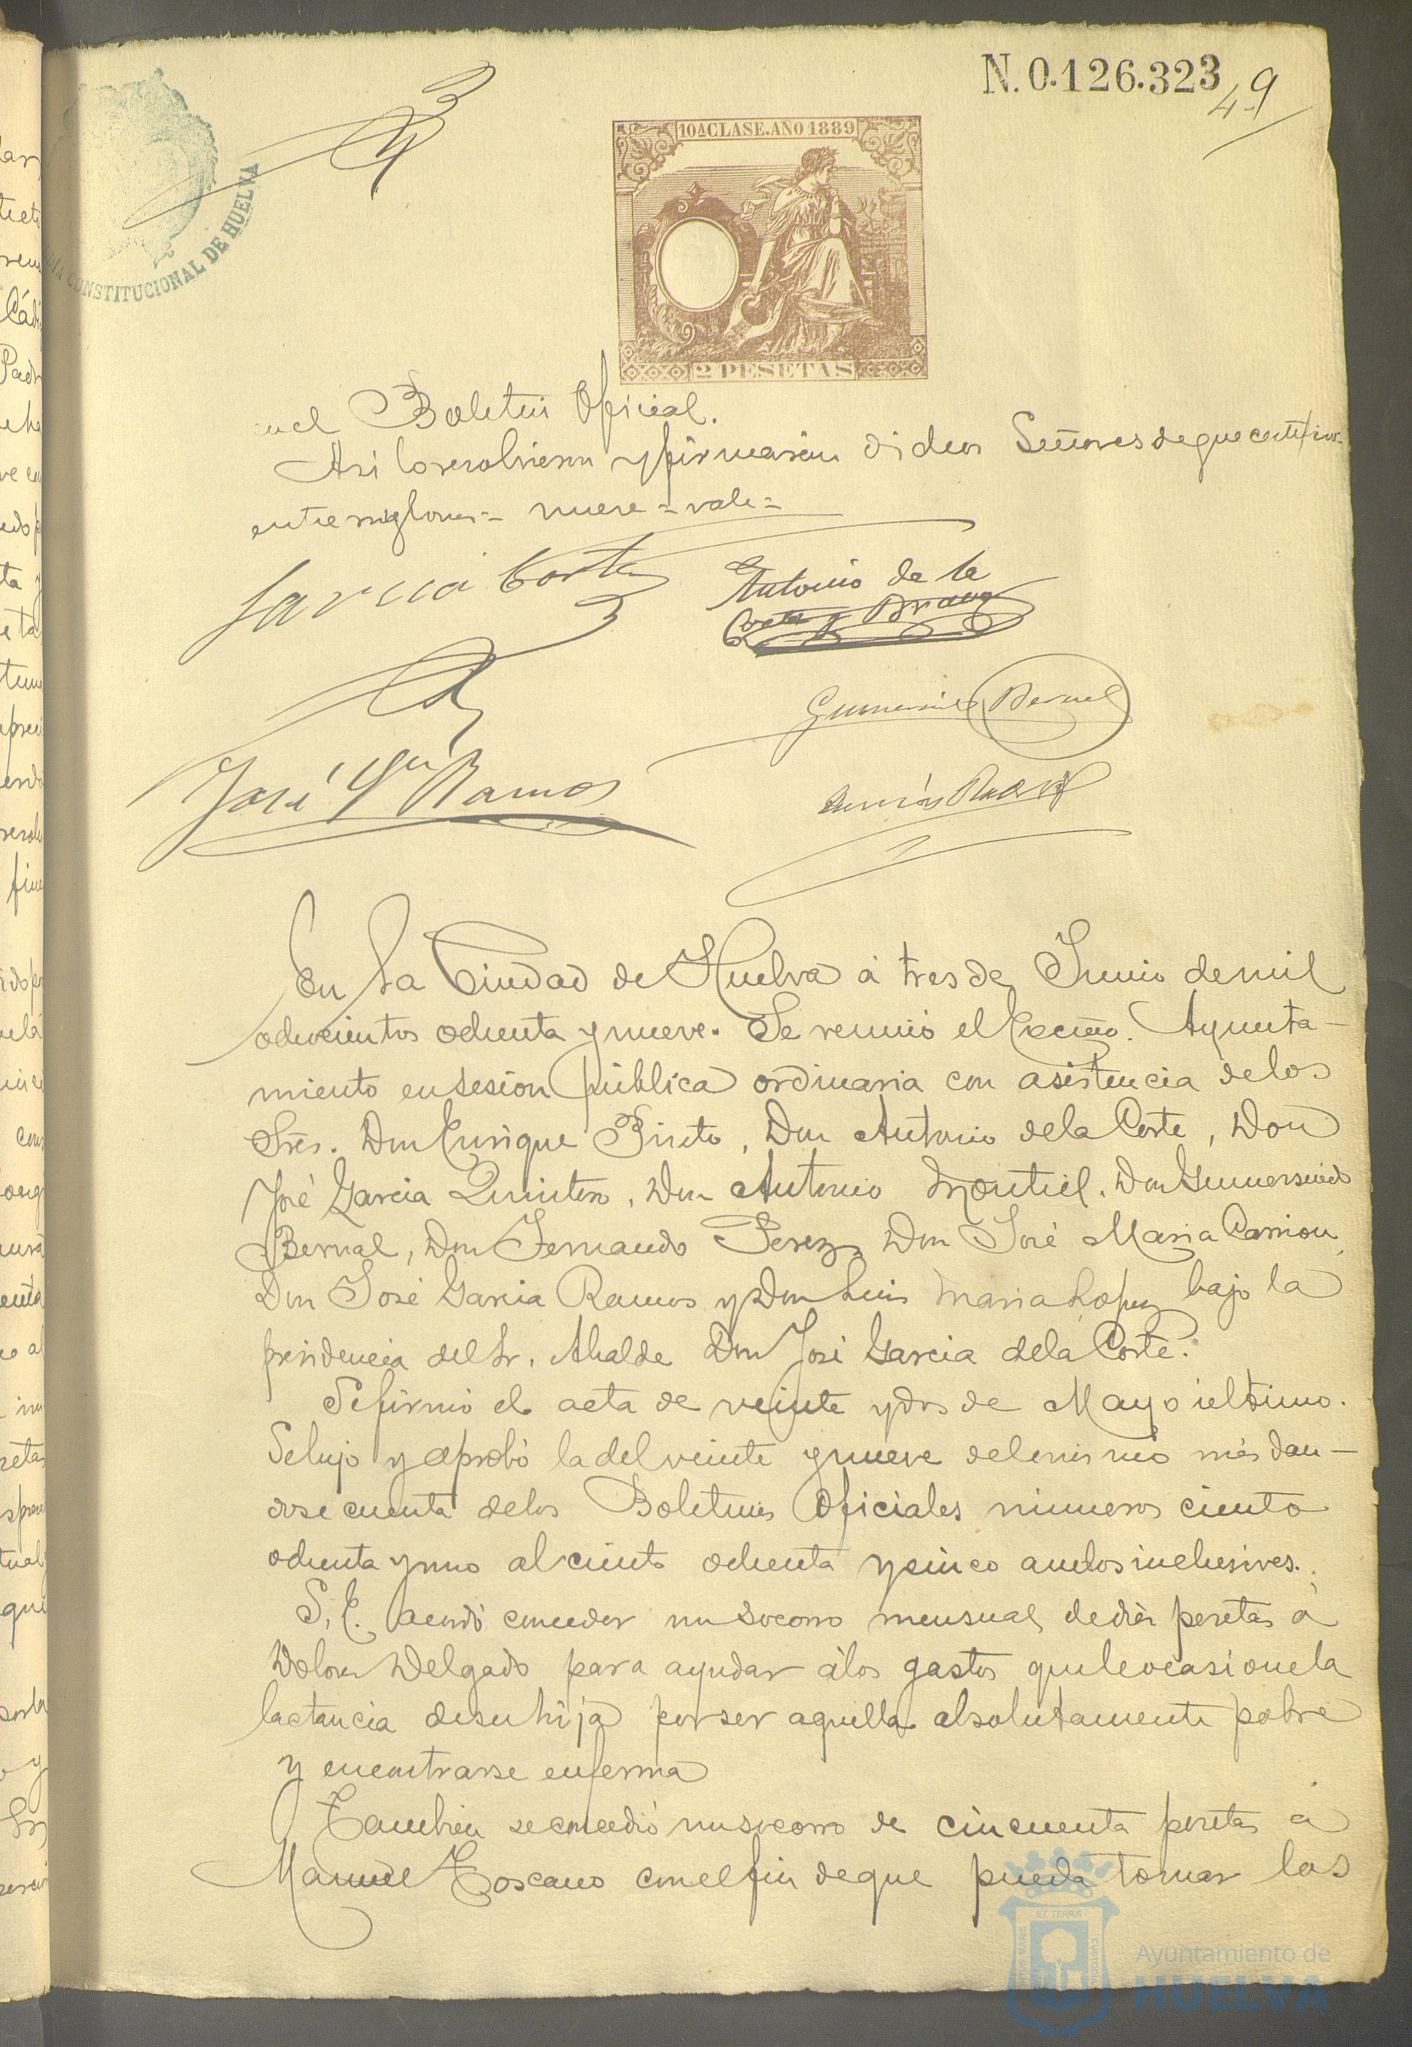 N. 0.126.323
49
10ª CLASE. AÑO 1889
CONSTITUCIONAL DE HUELVA
2 PESETAS
en el Boletin Oficial.
Asi lo resolvieron y firmarán dichos Señores de que certifico-
entrerenglones = nueve = vale =
Garcia Corte
Antonio de la
Corte y Bravo
Gumersindo Bernal
José Gª Ramos
En la Ciudad de Huelva á tres de Junio de mil
ochocientos ochenta y nueve. Se reunió el Excmo. Ayunta-
miento en sesion pública ordinaria con asistencia de los
Sres. Don Enrique Pinto, Don Antonio de la Corte, Don
José Garcia Quintero, Don Antonio Montiel, Don Gumersindo
Bernal, Don Fernando Perez, Don José Maria Carrion,
Don José Garcia Ramos y Don Luis Maria Lopez bajo la
presidencia del Sr. Alcalde Don José Garcia de la Corte.
Se firmó el acta de veinte y dos de Mayo último.
Se leyó y aprobó la del veinte y nueve del mismo mes dan-
dose cuenta de los Boletines Oficiales números ciento
ochenta y uno al ciento ochenta y cinco ambos inclusives.
S. E. acordó conceder un socorro mensual de diez pesetas á
Dolores Delgado para ayudar á los gastos que le ocasione la
lactancia de su hija por ser aquella absolutamente pobre
y encontrarse enferma
Tambien se concedió un socorro de cincuenta pesetas á
Manuel Toscano con el fin de que pueda tomar los
Ayuntamiento de
HUELVA